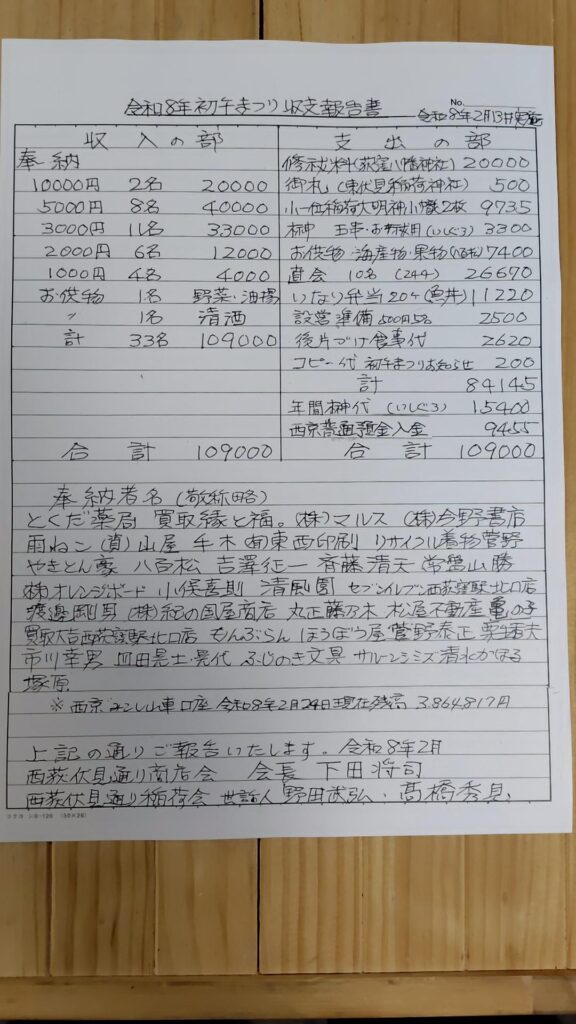 令和8年初午まつり収支報告書
No.
令和8年2月13日実施
収入の部 支出の部
奉納 修祓料(荻窪八幡神社) 20000
10000円 2名 20000 御札(東伏見稲荷神社) 500
5000円 8名 40000 小一位稲荷大明神小幟2枚 9735
3000円 11名 33000 榊中 玉串・お祓用(いしぐろ) 3300
2000円 6名 12000 お供物・海産物・果物 7400
1000円 4名 4000 直会 10名 26670
お供物 1名 野菜・油揚 いなり弁当20ヶ(魚井) 11220
〃 1名 清酒 設営準備 500円5名 2500
計 33名 109000 後片づけ食事代 2620
コピー代 初午まつりお知らせ 200
計 84145
年間榊代(いしぐろ) 15400
西京普通預金入金 9455
合計 109000 合計 109000
奉納者名(敬称略)
とくだ薬局 買取縁と福。(株)マルス (株)今野書店
雨ねこ (資)山屋 千木 (有)東西印刷 リサイクル着物菅野
やきとん豪 八百松 吉澤征一 斉藤清天 常盤山勝
(株)オレンジボード 小俣喜則 清風園 セブンイレブン西荻窪駅北口店
渡邊剛男 (株)紀の国屋商店 丸正藤乃木 松屋不動産 亀の子
買取大吉西荻窪駅北口店 もんぶらん ほうぼう屋 菅野泰正
市川幸男 ふじのき文具 サルーンシミズ清水かほる
塚原
※西京みこし山車口座 令和8年2月24日現在残高 3,864,817円
上記の通りご報告いたします。令和8年2月
西荻伏見通り商店会 会長 下田将司
西荻伏見通り稲荷会 世話人 野田武弘・髙橋秀具